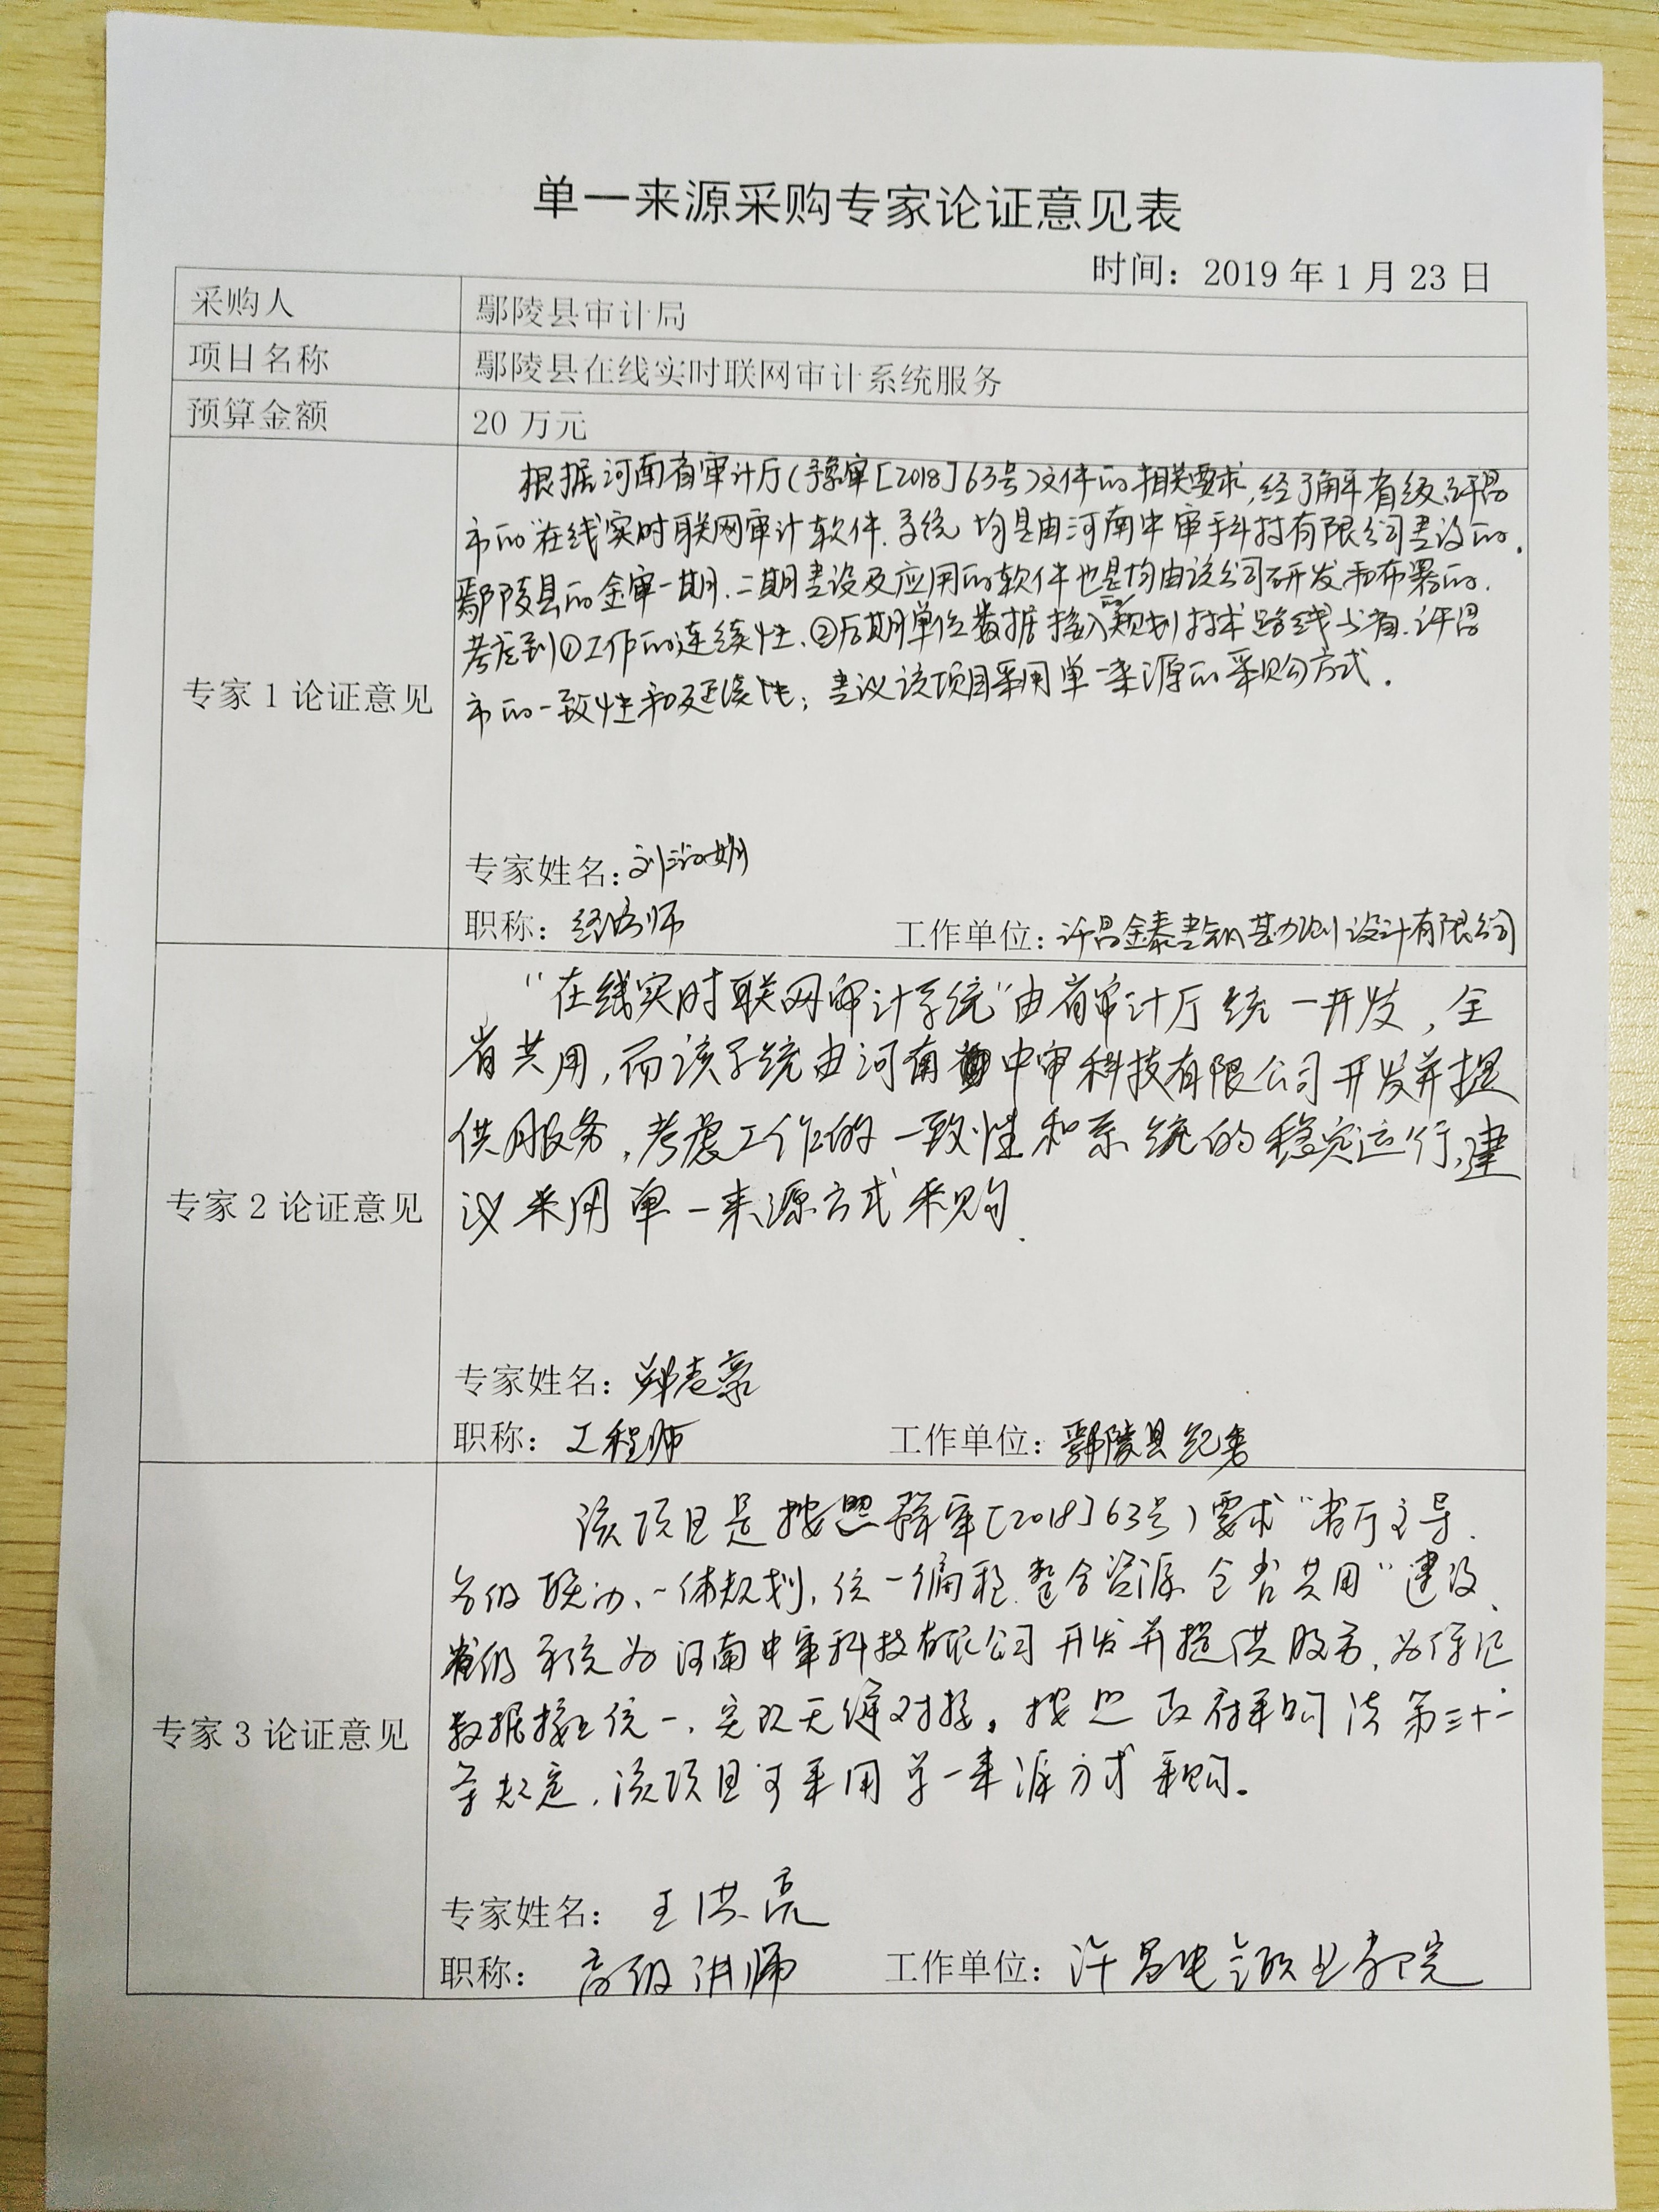 单一来源采购专家论证意见表
时间：2019年1月23日
采购人 鄢陵县审计局
项目名称 鄢陵县在线实时联网审计系统服务
预算金额 20万元
专家1论证意见
根据河南省审计厅(豫审[2018]63号)文件的相关要求,经了解省级、许昌
市的在线实时联网审计软件系统均是由河南中审科技有限公司建设的.
鄢陵县的金审一期.二期建设及应用的软件也是均由该公司研发和布署的.
考虑到①工作的连续性、②后期单位数据接入的规划技术路线与省.许昌
市的一致性和延续性;建议该项目采用单一来源的采购方式.
专家姓名:刘淑娟
职称:经济师 工作单位:许昌金泰建筑勘测设计有限公司
专家2论证意见
“在线实时联网审计系统”由省审计厅统一开发,全
省共用,而该系统由河南中审科技有限公司开发并提
供服务,考虑工作的一致性和系统的稳定运行,建
议采用单一来源方式采购.
专家姓名:郑志豪
职称:工程师 工作单位:鄢陵县纪委
专家3论证意见
该项目是按照豫审[2018]63号)要求“省厅主导.
各级联动、一体规划,统一编程.整合资源 全省共用”建设、
省级系统为河南中审科技有限公司开发并提供服务,为保证
数据接口统一,实现无缝对接。按照政府采购法第三十一
条规定,该项目可采用单一来源方式采购。
专家姓名: 王洪亮
职称: 高级讲师 工作单位:许昌电气职业学院